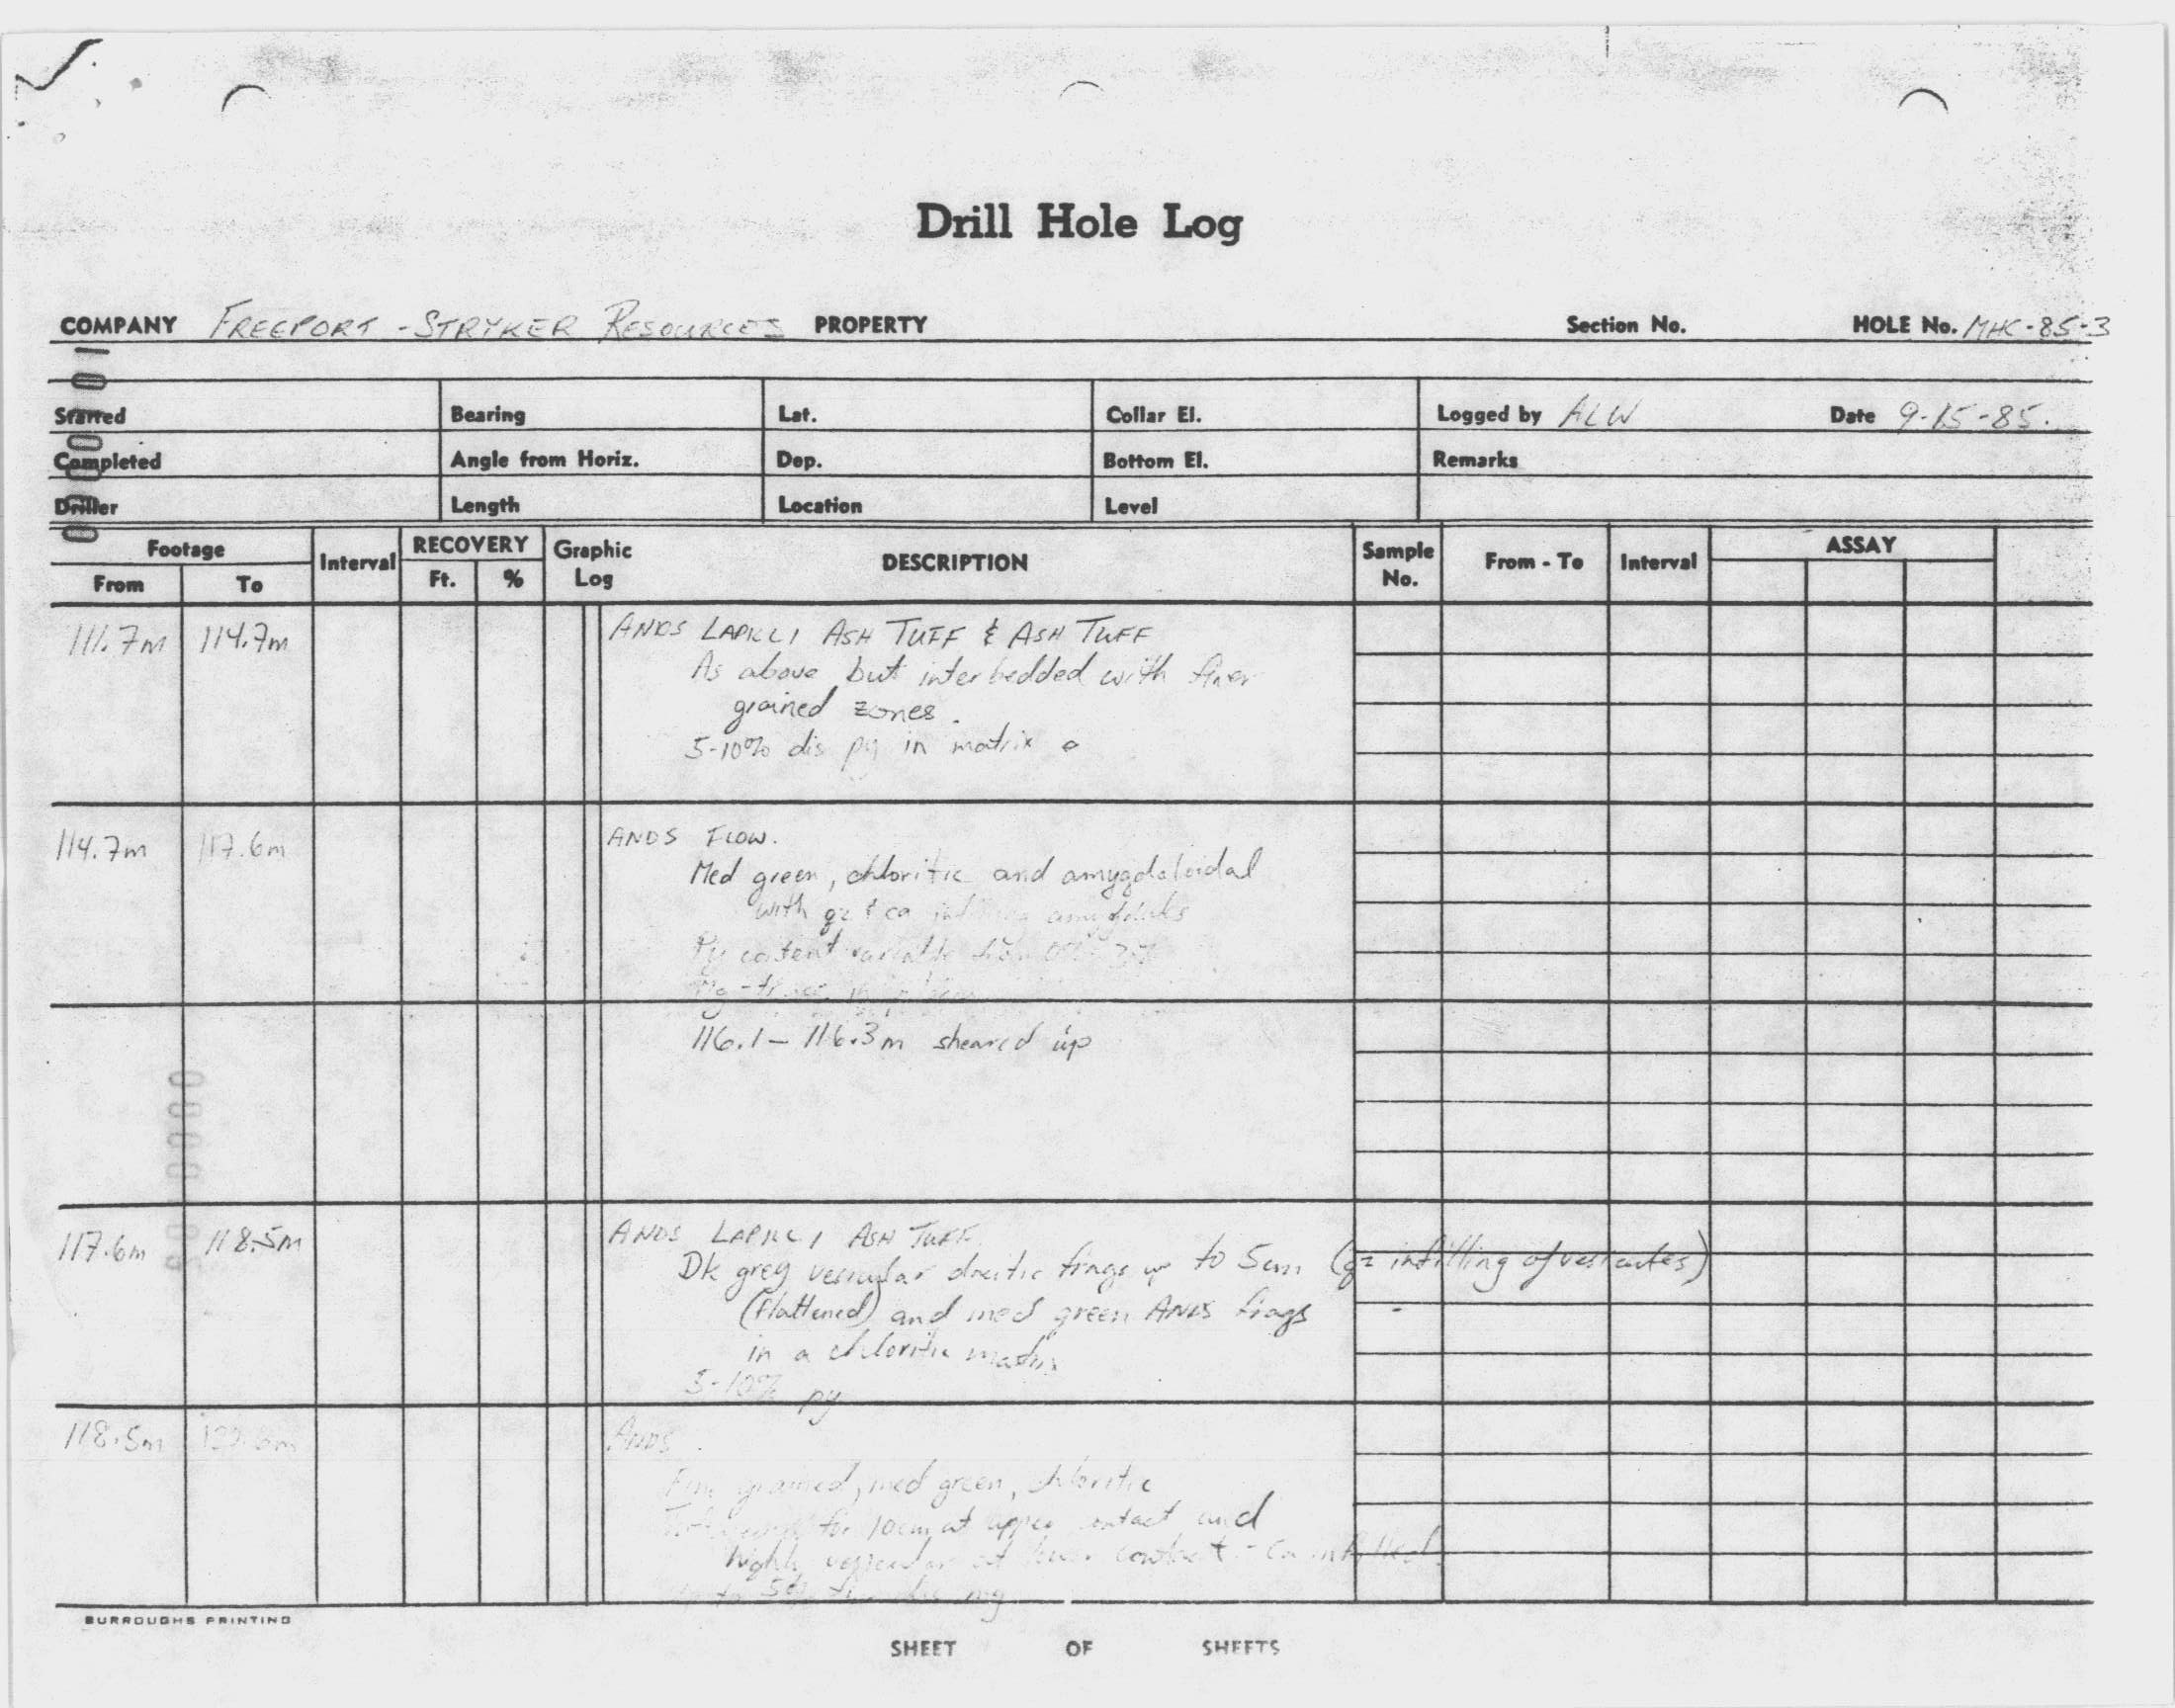 Drill Hole Log
COMPANY FREEPORT - STRYKER RESOURCES PROPERTY Section No. HOLE No. MHC-85-3
Started Bearing Lat. Collar El. Logged by ALW Date 9-15-85.
Completed Angle from Horiz. Dep. Bottom El. Remarks
Driller Length Location Level
Footage Interval RECOVERY Graphic Log DESCRIPTION Sample No. From - To Interval ASSAY
From To Ft. %
111.7m 114.7m ANDS LAPILLI ASH TUFF & ASH TUFF
As above but interbedded with finer
grained zones.
5-10% dis py in matrix
114.7m 117.6m ANDS FLOW.
Med green, chloritic and amygdaloidal
with qz & ca infilling amygdules
Py content variable from
116.1 - 116.3m sheared up
117.6m 118.5m ANDS LAPILLI ASH TUFF
Dk grey vesicular dacitic frags up to 5cm (qz infilling of vesicules)
(flattened) and med green ANDS frags
in a chloritic matrix
5-10% py
118.5m ANDS
Fine grained, med green, chloritic
for 10cm at upper contact and
highly vesicular at lower contact - ca infilled.
BURROUGHS PRINTING
SHEET OF SHEETS